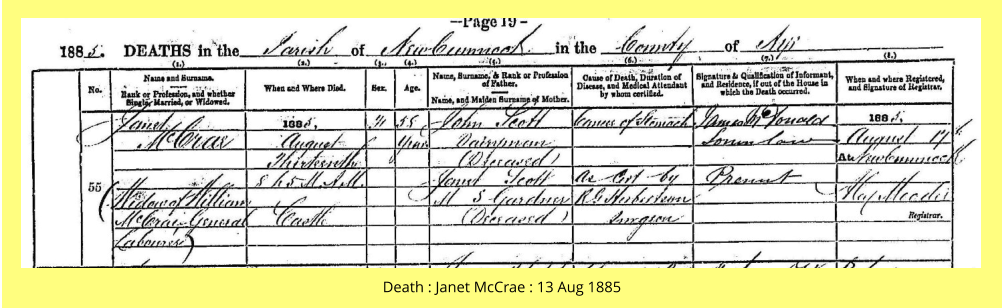 —Page 19—
1885. DEATHS in the Parish of New Cumnock in the County of Ayr
(1.) (2.) (3.) (4.) (5.) (6.) (7.) (8.)
No.
Name and Surname.
Rank or Profession, and whether
Single, Married, or Widowed.
When and Where Died.
Sex.
Age.
Name, Surname, & Rank or Profession
of Father.
Name, and Maiden Surname of Mother.
Cause of Death, Duration of
Disease, and Medical Attendant
by whom certified.
Signature & Qualification of Informant,
and Residence, if out of the House in
which the Death occurred.
When and where Registered,
and Signature of Registrar.
55
Janet
McCrae
(Widow of William
McCrae General
Labourer)
1885,
August
Thirteenth
5 h 5 M A.M.
Castle
55
Years
John Scott
(Deceased)
Janet Scott
M S Gardner
(Deceased)
Cancer of Stomach
As Cert by
Surgeon
James McDonald
Son in law
Present
1885,
August
At New Cumnock
Registrar.
Death : Janet McCrae : 13 Aug 1885